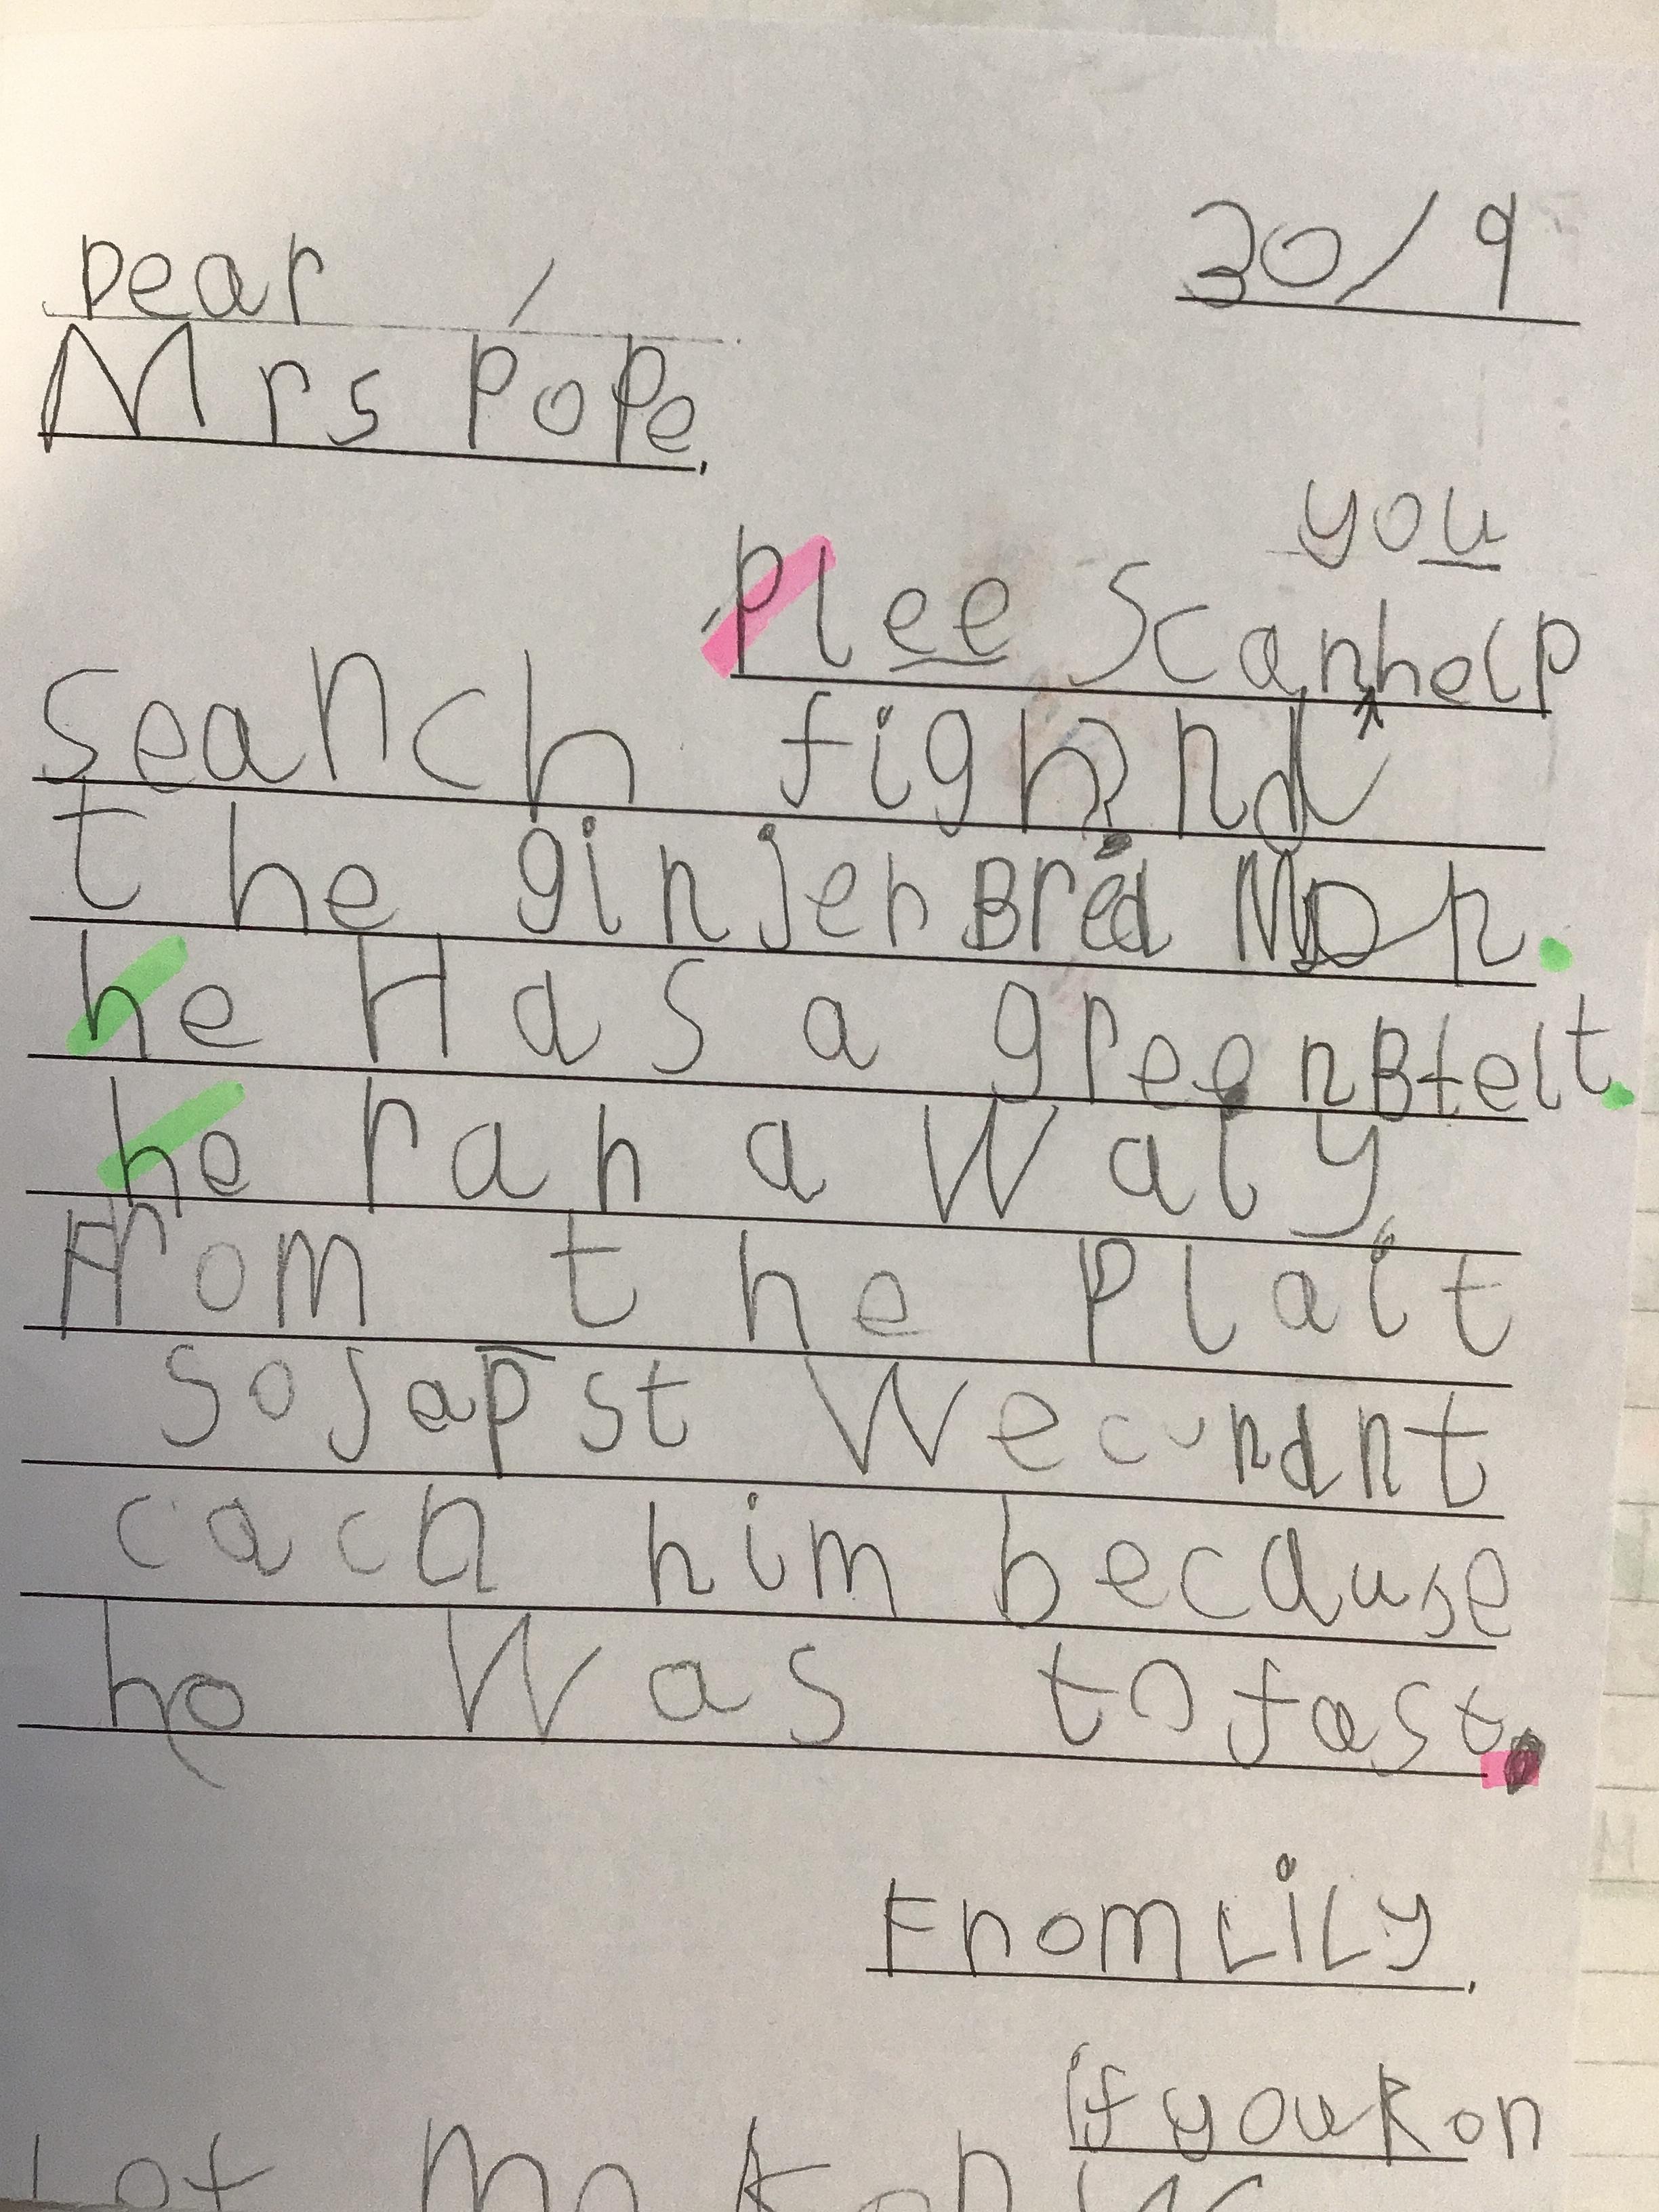 30/9
Dear
Mrs PoPe.
you
Plee Scan help
Search fighnd
the ginjer Bred Man.
he Has a green Btelt.
he ran a Waly
From the Plait
So Japst We cundnt
cach him because
he Was to fast.
From LiLy.
if you kon
Let me